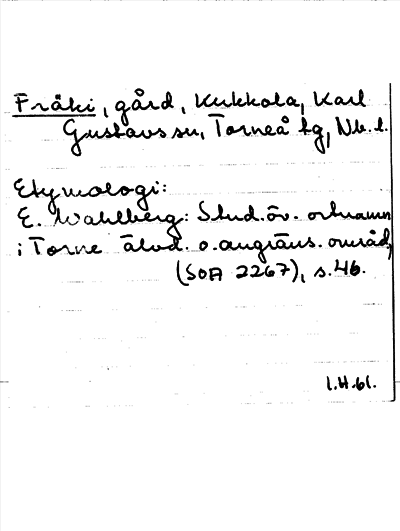 Fräki, gård, Kukkola, Karl
Gustavs sn, Torneå tg, Nb. l.
Etymologi:
E. Wahlberg: Stud. öv. ortnamn
i Torne älvd. o. angräns. områd,
(SOA 2267), s. 46.
1.4.61.